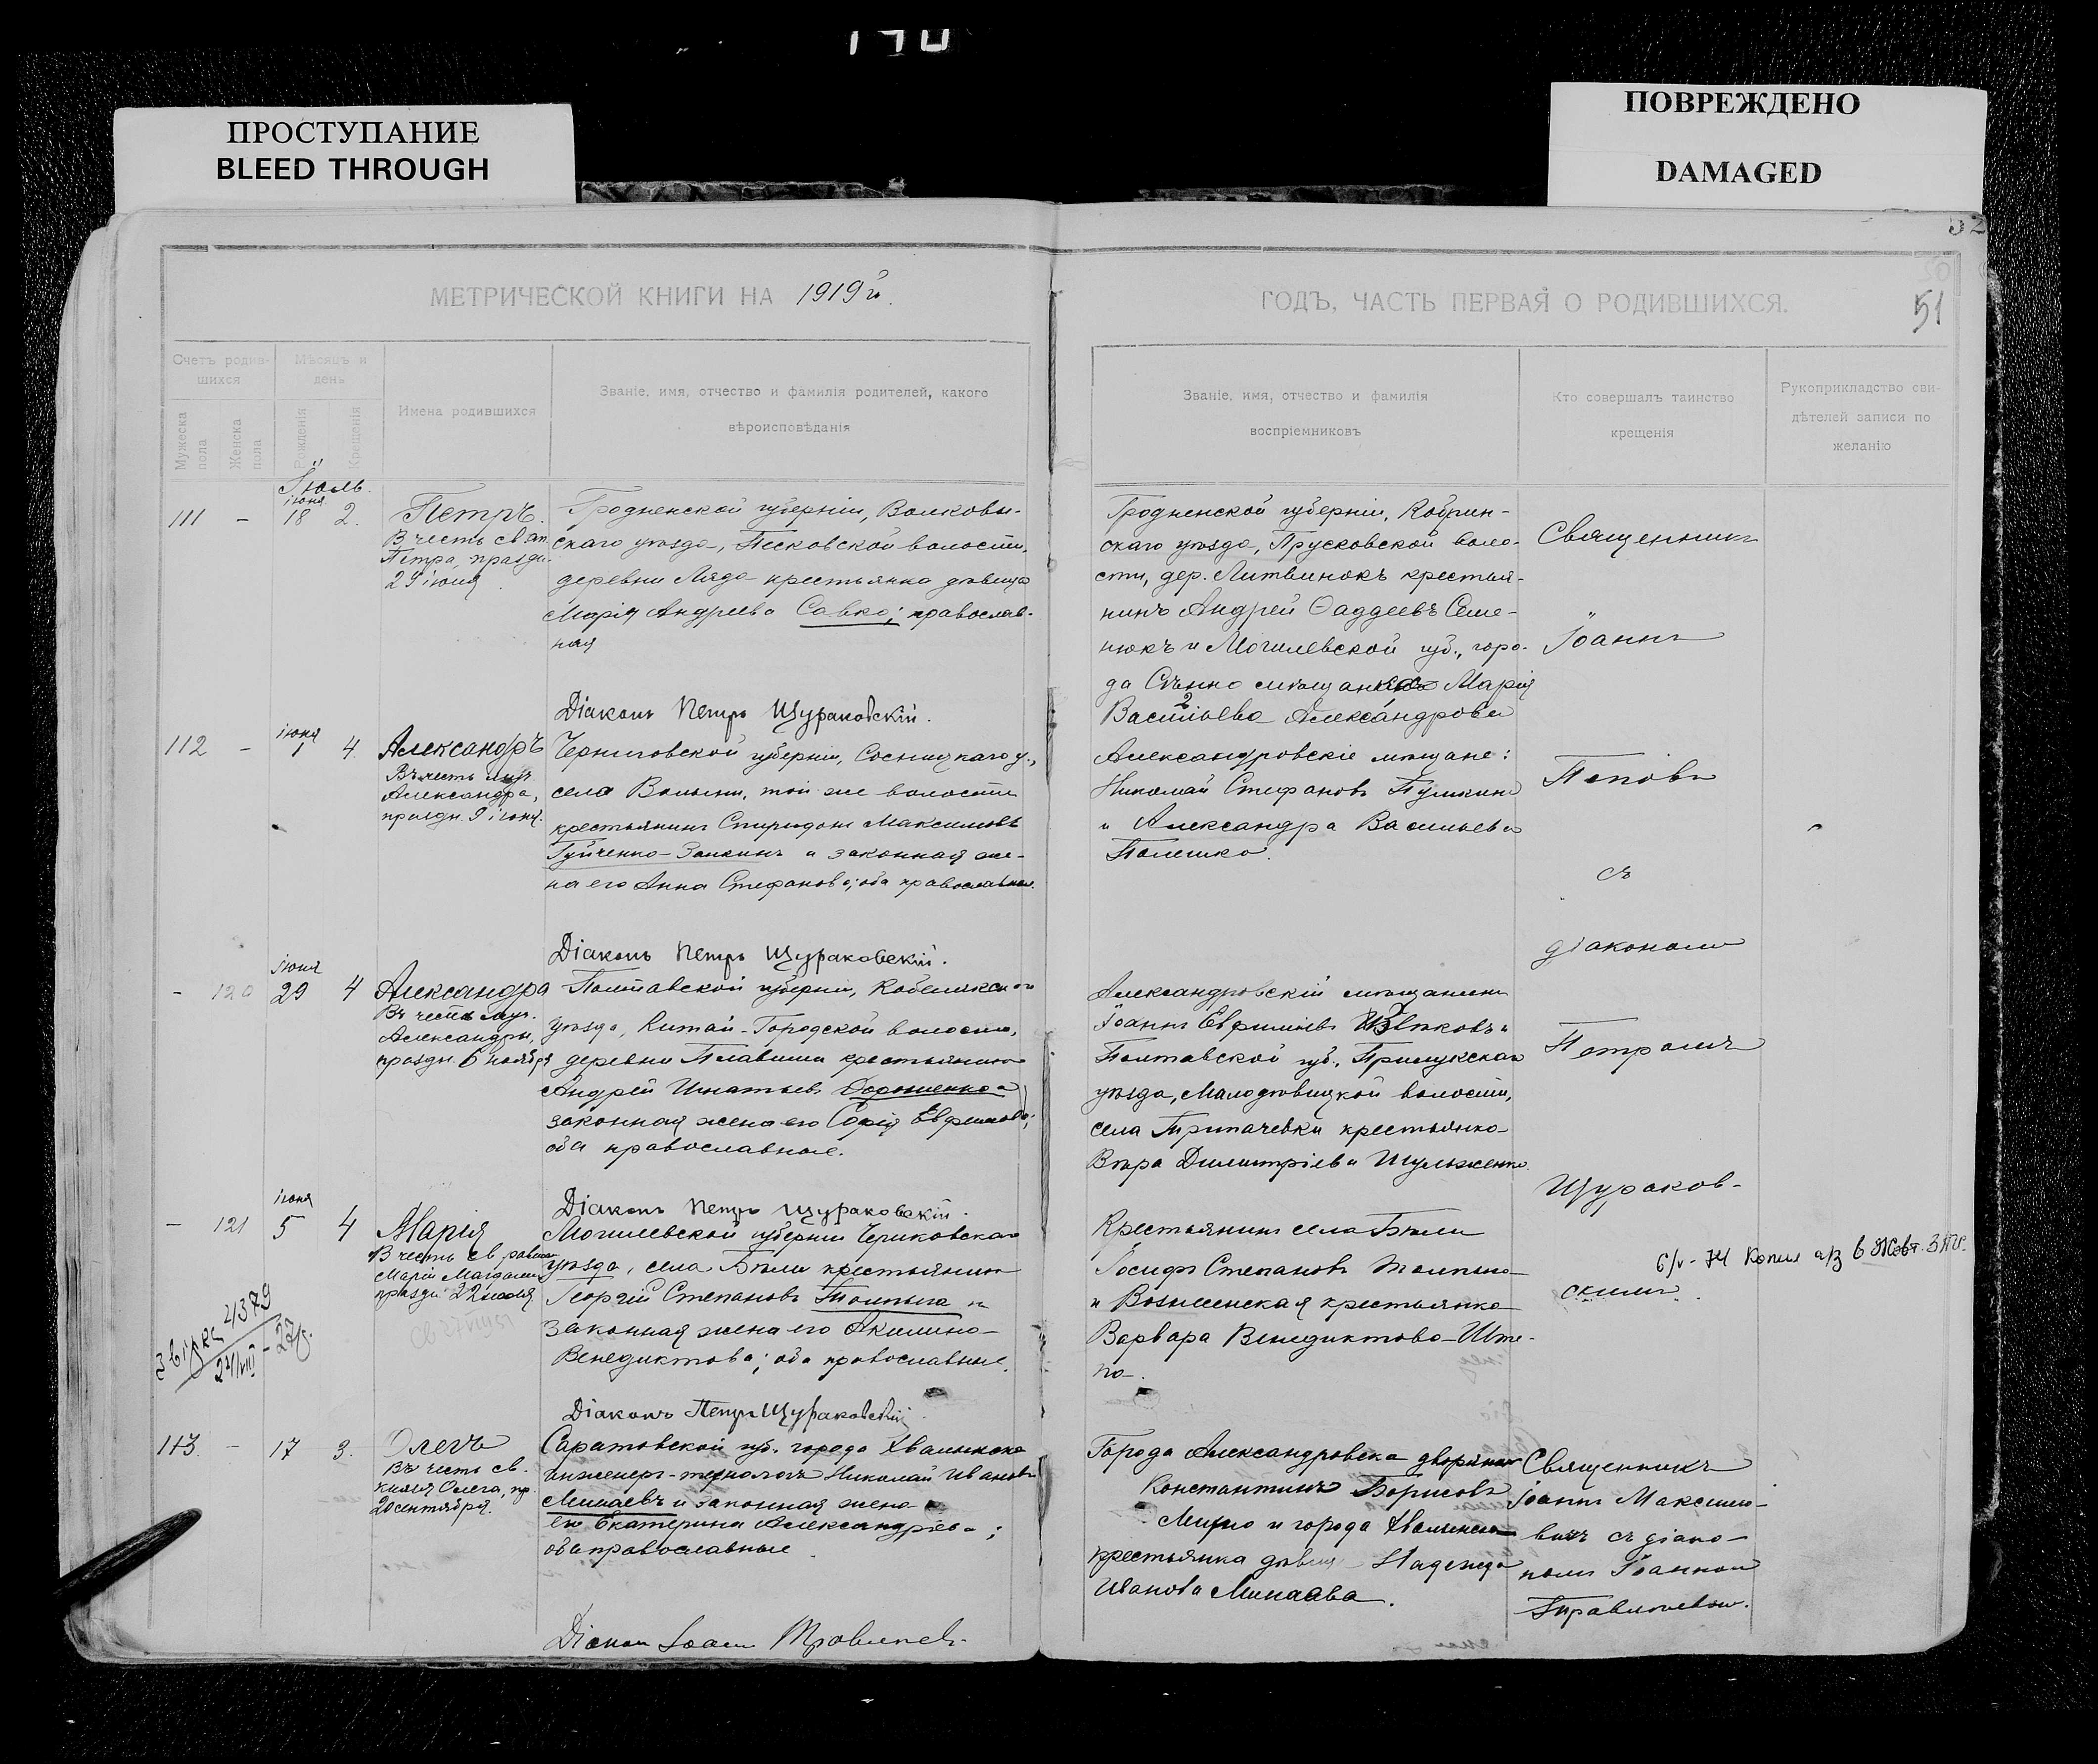 ПРОСТУПАНИЕ
BLEED THROUGH
ПОВРЕЖДЕНО
DAMAGED
52
51
МЕТРИЧЕСКОЙ КНИГИ НА 1919й.
ГОДЪ, ЧАСТЬ ПЕРВАЯ О РОДИВШИХСЯ.
Счетъ родив-
шихся
Мужеска пола
Женска пола
Мѣсяцъ и
день
Рожденія
Крещенія
Имена родившихся
Званіе, имя, отчество и фамилія родителей, какого
вѣроисповѣданія
Званіе, имя, отчество и фамилія
воспріемниковъ
Кто совершалъ таинство
крещенія
Рукоприкладство сви-
дѣтелей записи по
желанію
Іюль.
111 – іюня 18 2.
Петръ.
В честь св. ап.
Петра, праздн.
29 іюня.
Гродненской губерніи, Волковы-
скаго уѣзда, Песковской волости,
деревни Ляда крестьянка дѣвица
Марія Андреева Савко; православ-
ная
Діаконъ Петръ Щураковскій.
Гродненской губерніи, Кобрин-
скаго уѣзда, Прусковской воло-
сти, дер. Литвинокъ крестья-
нинъ Андрей Ѳаддеевъ Семе-
нюкъ и Могилевской губ., горо-
да Сѣнно Марія
Васильева Александрова
112 – іюня 1 4.
Александръ
Въ честь муч.
Александра,
праздн. 9 іюня.
Черниговской губерніи, Сосницкаго у.,
села Волынки, той же волости
крестьянинъ Спиридонъ Максимовъ
Гуйченко-Заикинъ и законная же-
на его Анна Стефанова; оба православные.
Діаконъ Петръ Щураковскій.
Александровскіе мѣщане:
Николай Стефановъ Пушкинъ
и Александра Васильева
Полешко.
– 120 іюня 29 4
Александра
Въ честь муч.
Александры,
праздн. 6 ноября
Полтавской губерніи, Кобелякскаго
уѣзда, Китай-Городской волости,
деревни крестьянинъ
Андрей Игнатьевъ Дорошенко и
законная жена его Софія Евфимова;
оба православные.
Діаконъ Петръ Щураковскій.
Александровскій мѣщанинъ
Іоаннъ Евфиміевъ и
Полтавской губ., Прилукскаго
уѣзда, Малодѣвицкой волости,
села крестьянка
Вѣра Димитріева Шульженко.
– 121 іюня 5 4
Марія
В честь св. равноап.
Маріи Магдалины
праздн. 22 іюля.
Могилевской губерніи Чериковскаго
уѣзда, села Бѣли крестьянинъ
Георгій Степановъ Толпыга и
законная жена его Акилина
Венедиктова; оба православные.
Діаконъ Петръ Щураковскій.
Крестьянинъ села Бѣли
Іосифъ Степановъ Толпыга
и Вознесенская крестьянка
Варвара Венедиктова Ште-
па.
4379
Священникъ
Іоаннъ
Поповъ
съ
діакономъ
Петромъ
Щураков-
скимъ.
113. – 17 3.
Олегъ
Въ честь св.
князя Олега, пр.
20 сентября.
Саратовской губ. города Хвалынска
инженеръ-технологъ Николай Ивановъ
Минаевъ и законная жена
его Екатерина Александрова;
оба православные.
Діаконъ Іоаннъ
Города Александровска дворянинъ
Константинъ Борисовъ
и города Хвалынска
крестьянка дѣвица Надежда
Иванова Минаева.
Священникъ
Іоаннъ Максимо-
вичъ съ діако-
номъ Іоанномъ